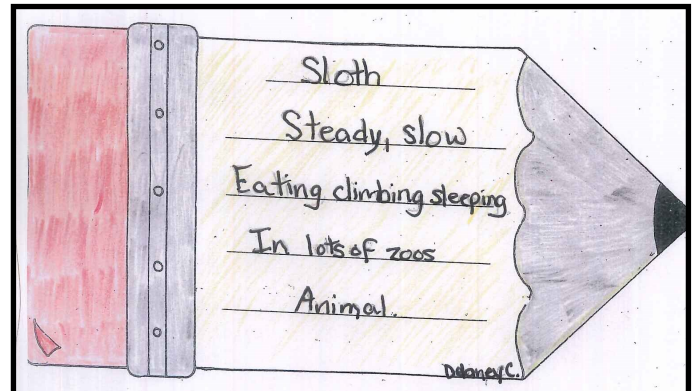 Sloth
Steady, slow
Eating climbing sleeping
In lots of zoos
Animal.
Delaney C.